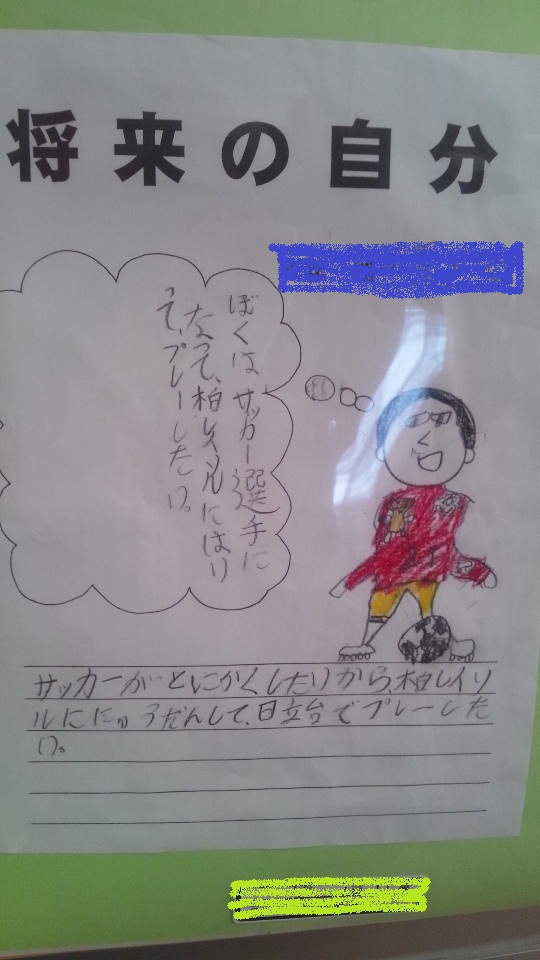 将来の自分
ぼくは サッカー選手に
なって、柏レイソルにはい
って、プレーしたい。
サッカーがとにかくしたいから、柏レイソ
ルににゅうだんして、日立台でプレーした
い。